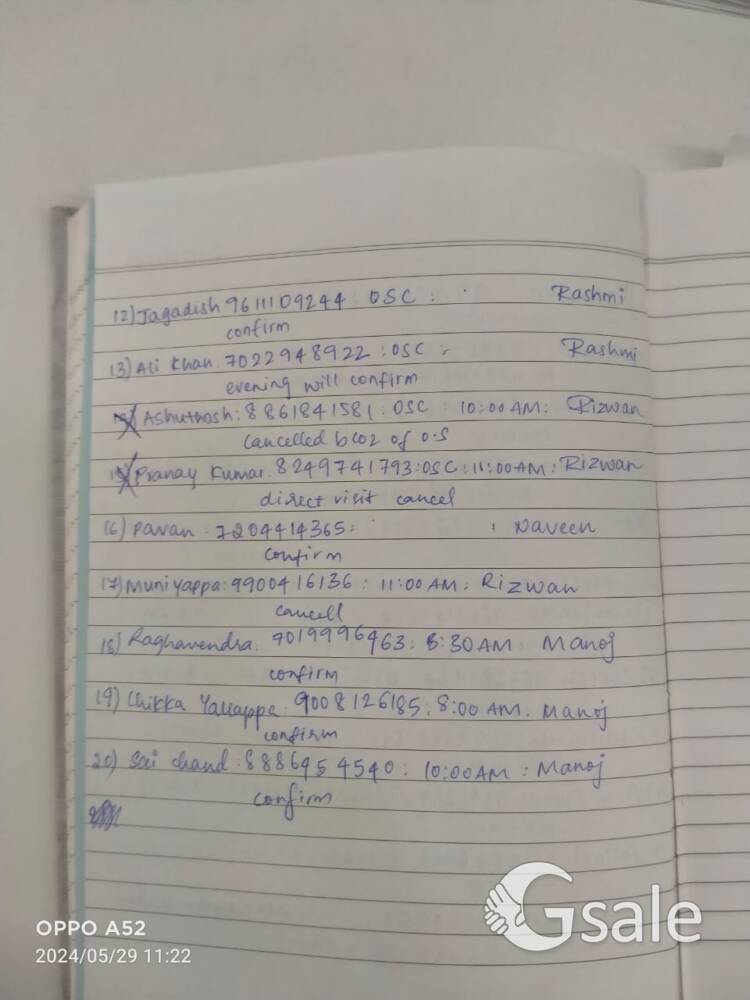 12) Jagadish 9611109244 OSC : Rashmi
confirm
13) Ali Khan. 7022948922 : OSC : Rashmi
evening will confirm
14) Ashuthosh : 8861841581 : OSC : 10:00 AM : Rizwan
Cancelled bcoz of O.S
15) Pranay Kumar. 8249741793 : OSC : 11:00 AM : Rizwan
direct visit cancel
16) Pavan : 7204414365 : : Naveen
confirm
17) Muniyappa : 9900416136 : 11:00 AM : Rizwan
cancell
18) Raghavendra. 7019996963 : 8:30 AM : Manoj
confirm
19) Chikka Yallappa : 9008126185 : 8:00 AM : Manoj
confirm
20) Sai chand : 8886954540 : 10:00 AM : Manoj
confirm
Gsale
OPPO A52
2024/05/29 11:22